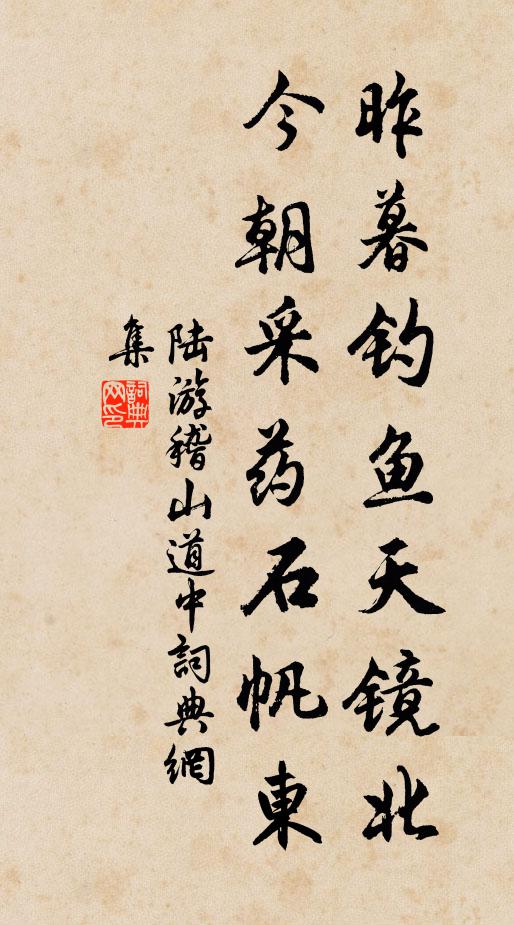 昨暮钓鱼天镜北
今朝采药石帆東
陆游稽山道中詞典網
集
詞典
网印